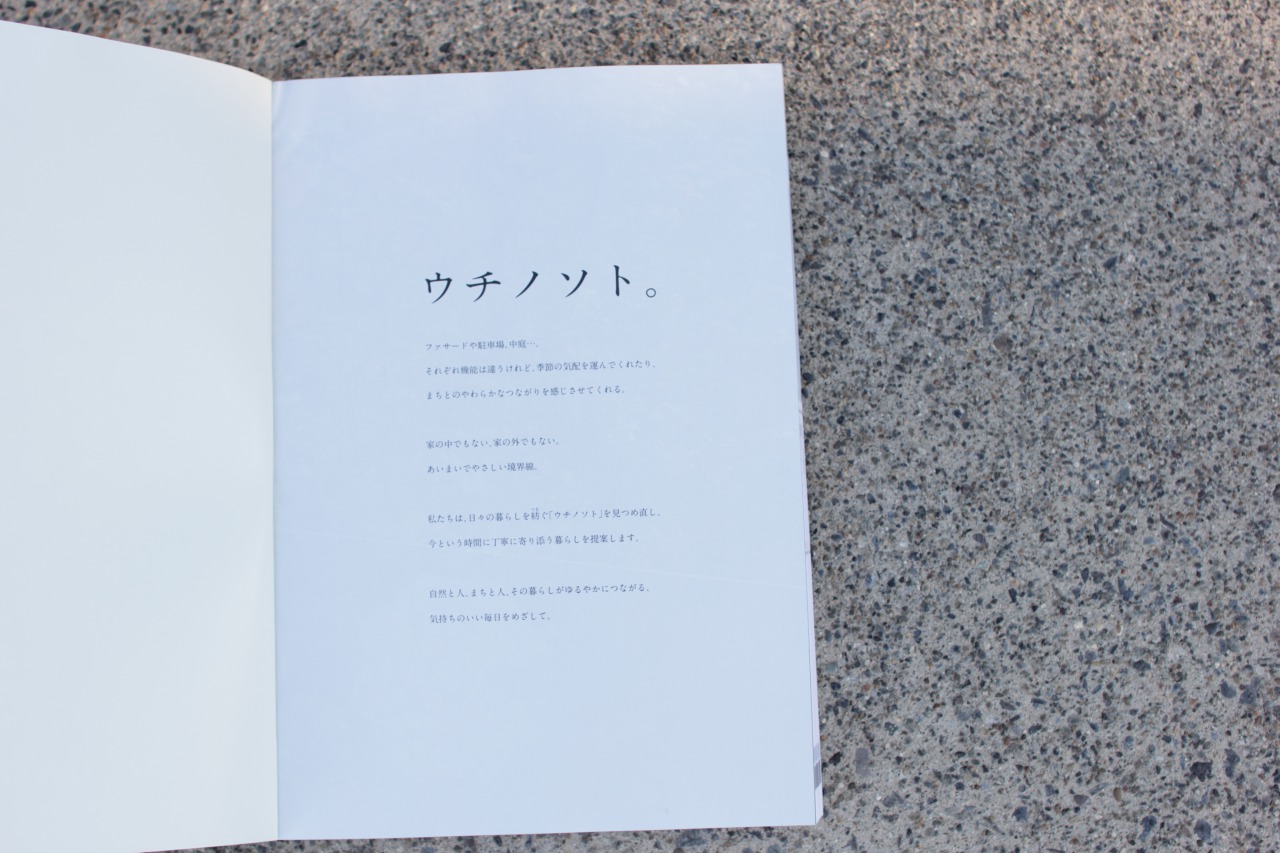 ウチノソト。
ファサードや駐車場、中庭…。
それぞれ機能は違うけれど、季節の気配を運んでくれたり、
まちとのやわらかなつながりを感じさせてくれる。
家の中でもない、家の外でもない。
あいまいでやさしい境界線。
私たちは、日々の暮らしを紡ぐ「ウチノソト」を見つめ直し、
今という時間に丁寧に寄り添う暮らしを提案します。
自然と人、まちと人、その暮らしがゆるやかにつながる、
気持ちのいい毎日をめざして。